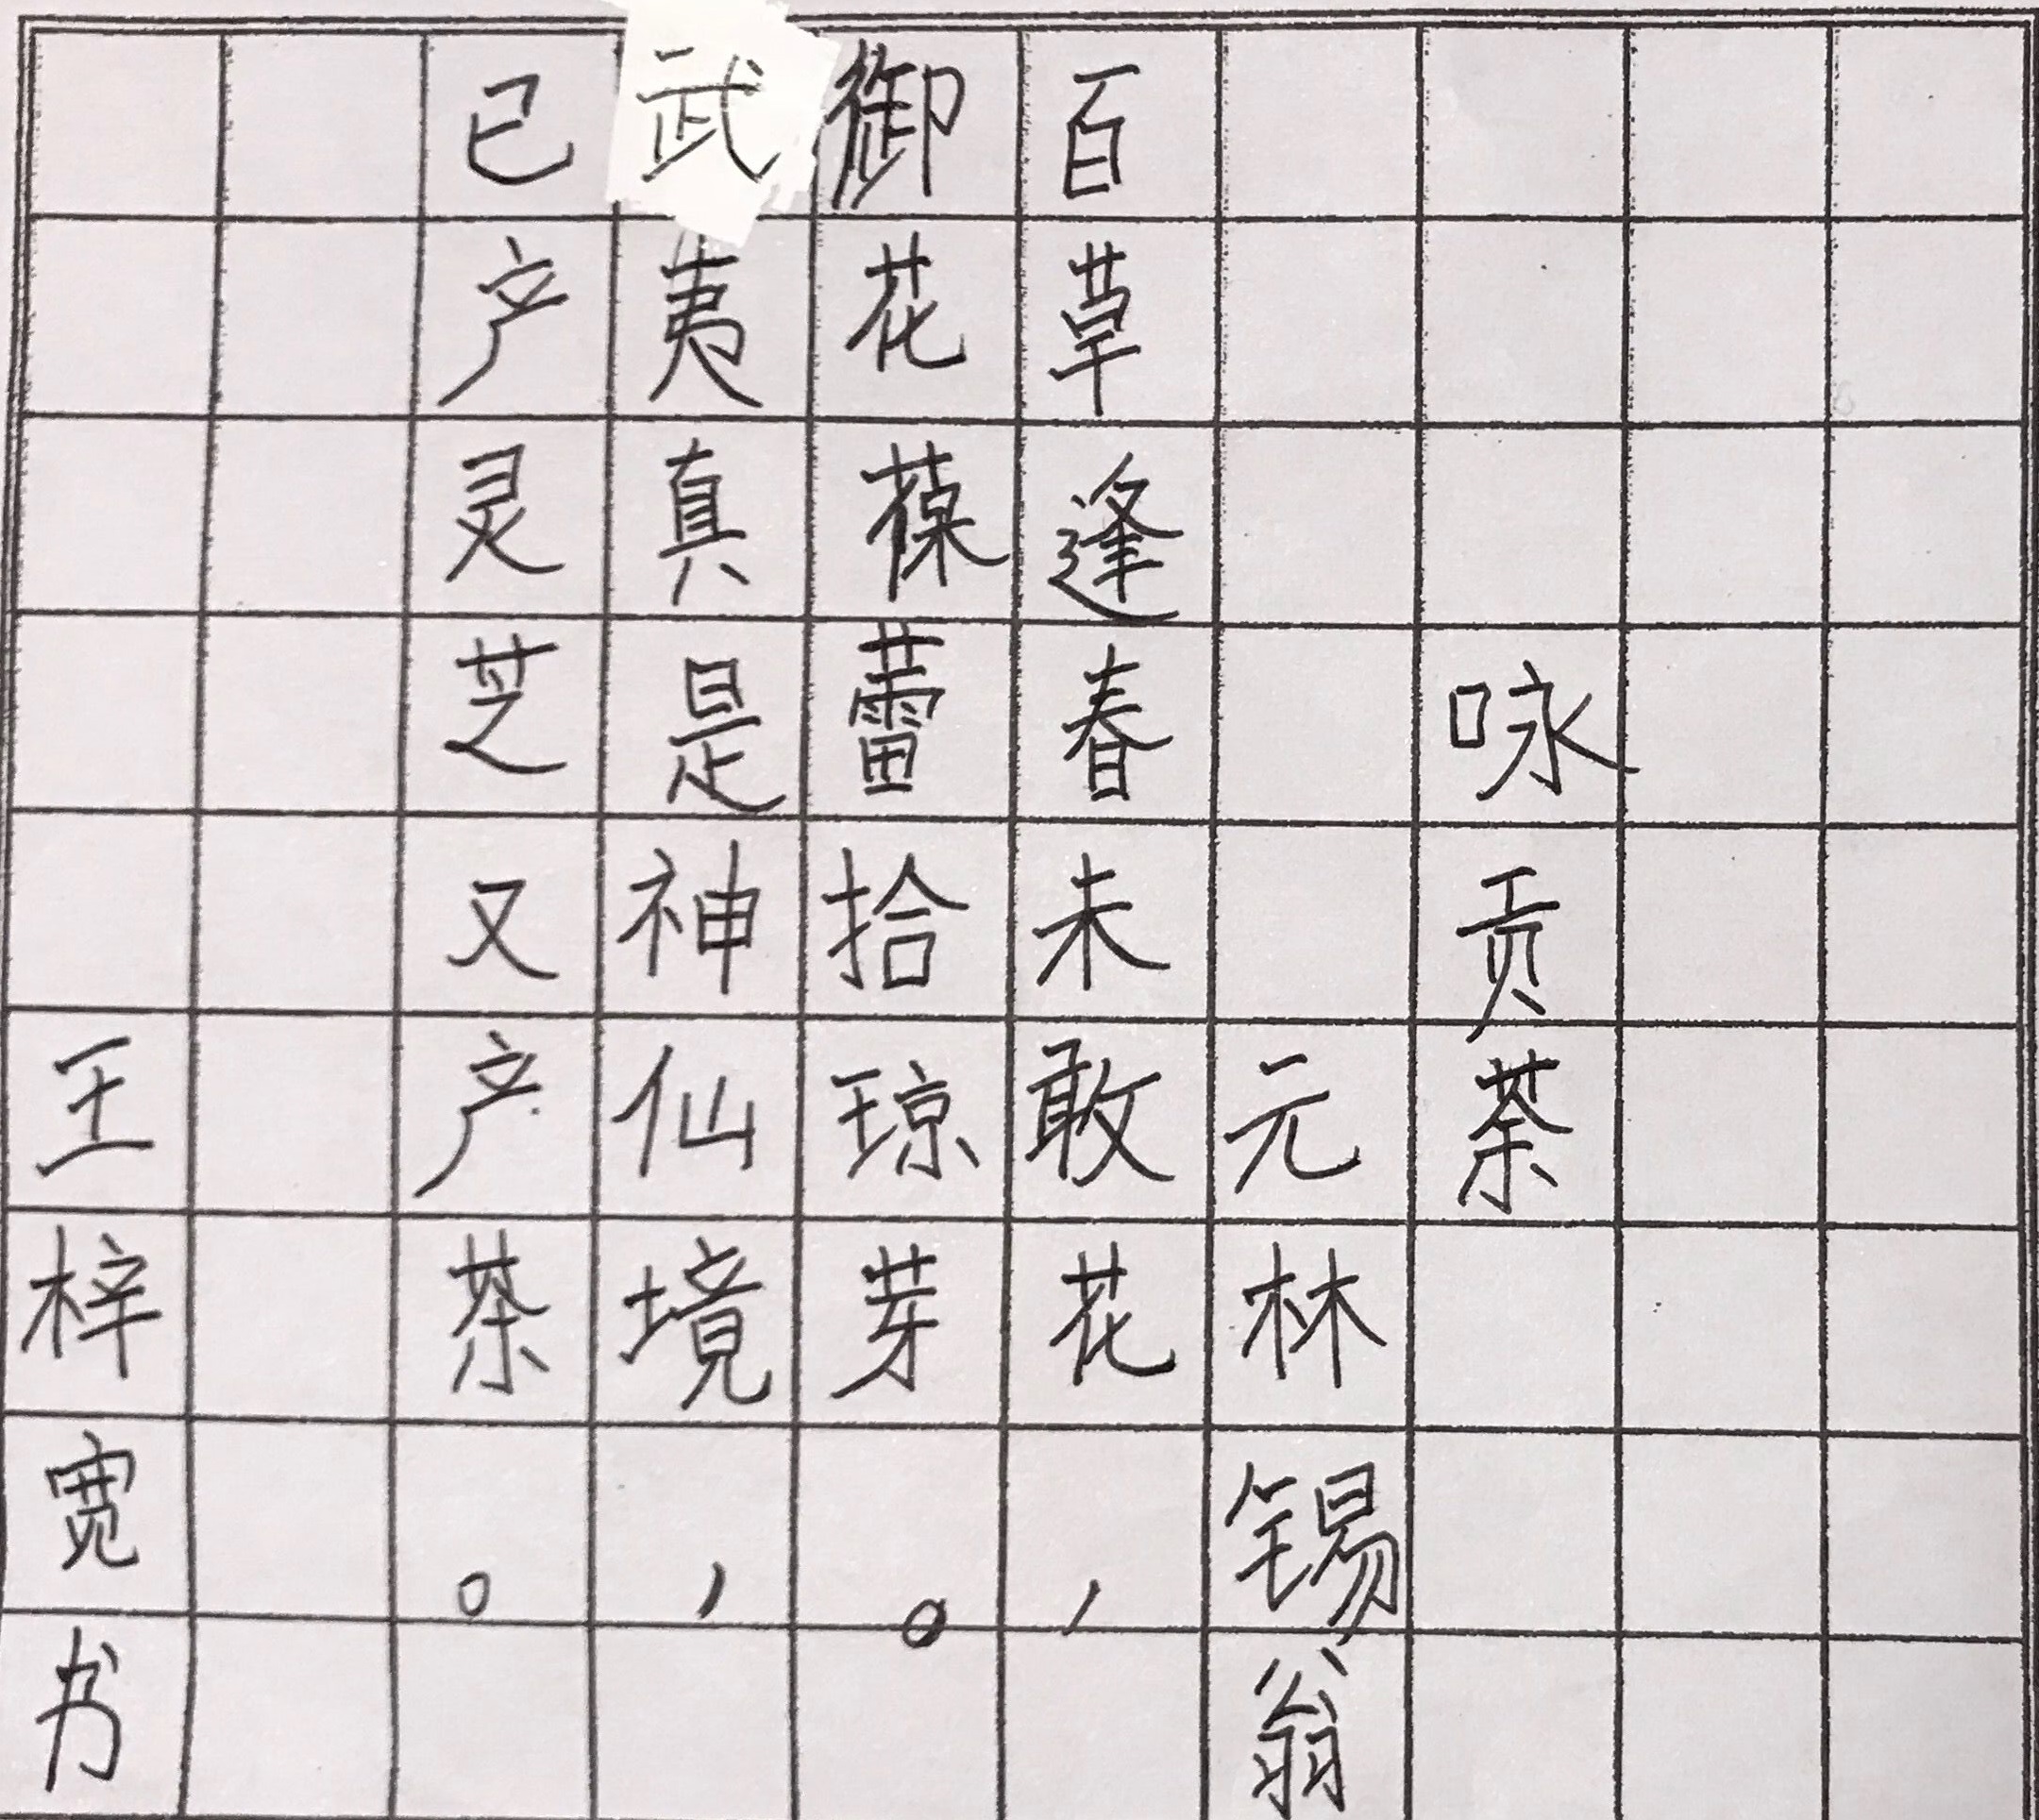 咏贡茶
元林锡翁
百草逢春未敢花，
御花葆蕾拾琼芽。
武夷真是神仙境，
已产灵芝又产茶。
王梓宽书